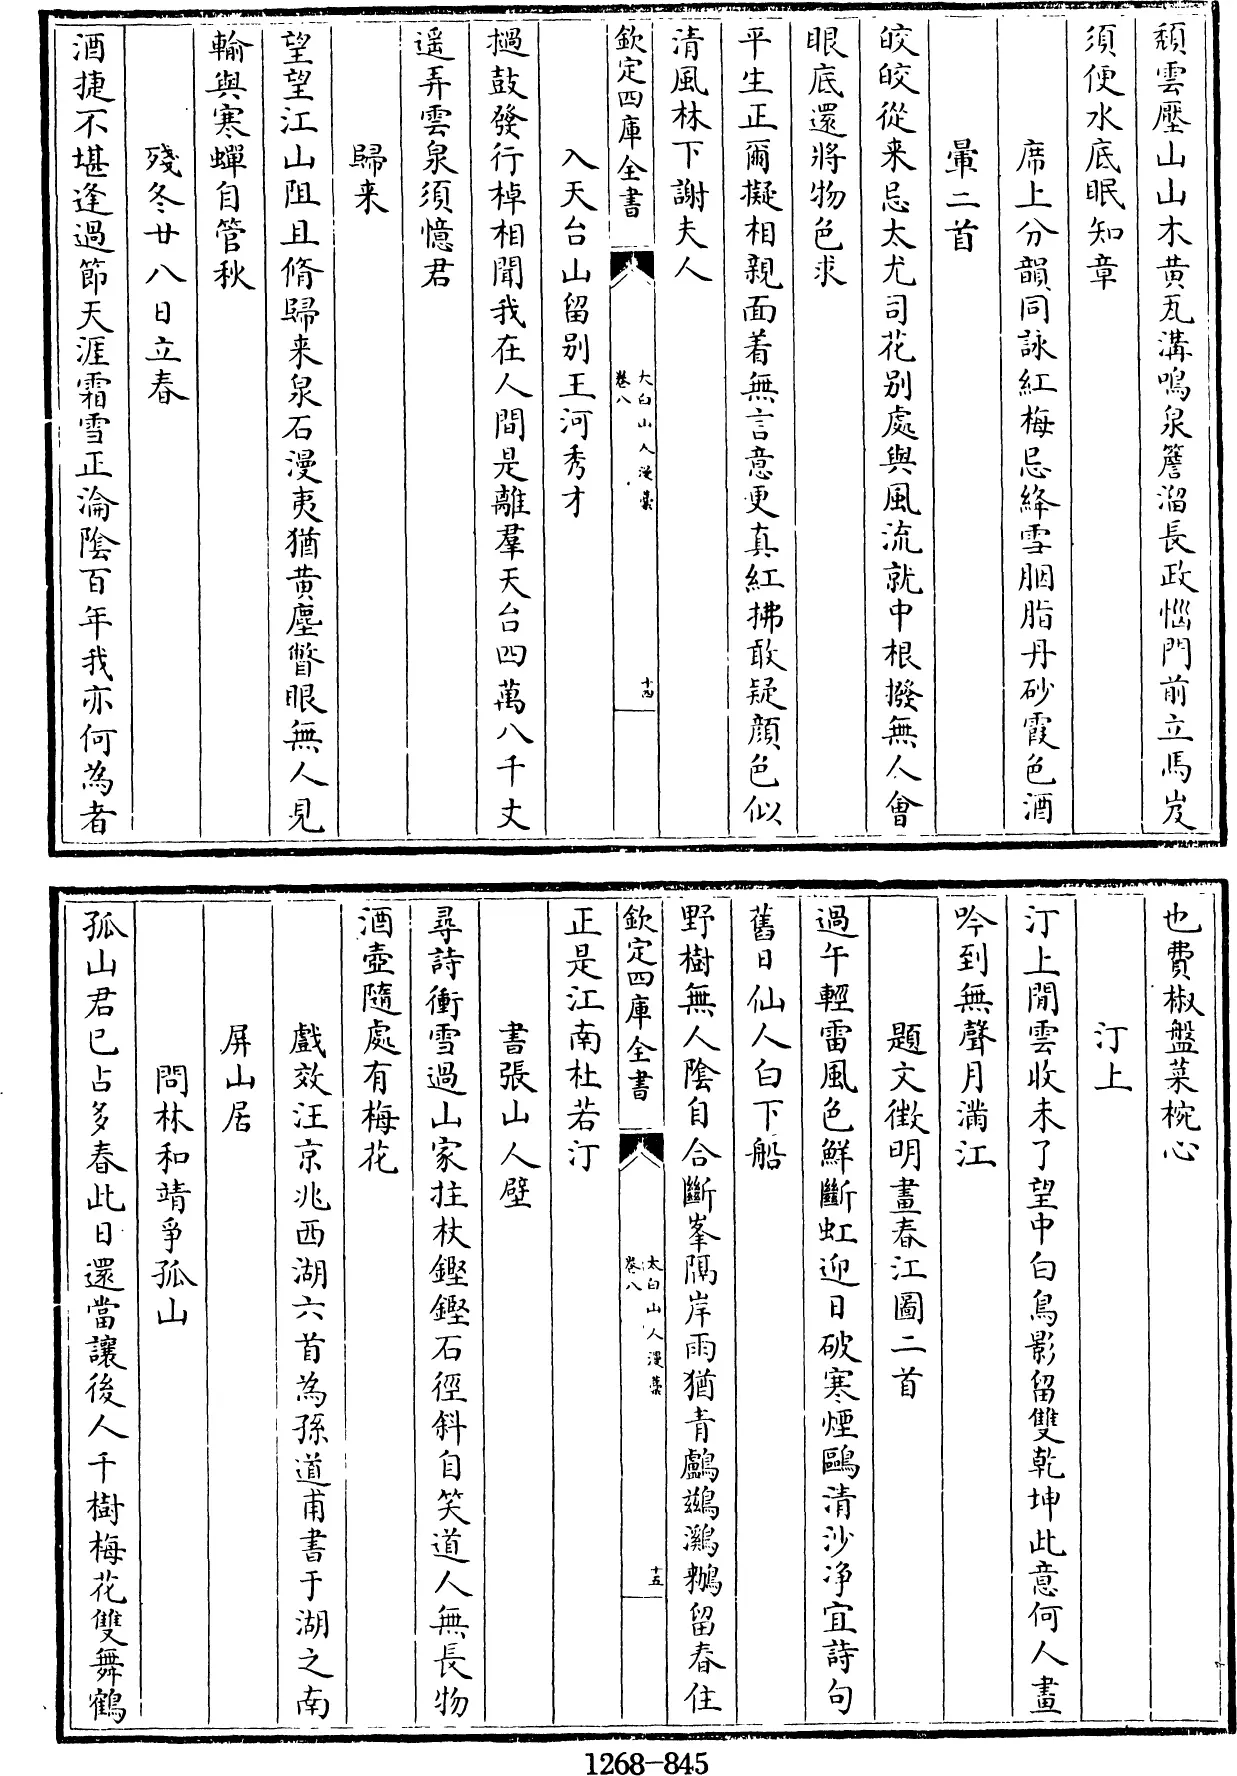 頹雲壓山山木黄瓦溝鳴泉簷溜長政惱門前立馬岌
須便水底眠知章
席上分韻同詠紅梅忌絳雪胭脂丹砂霞色酒
暈二首
皎皎從来忌太尤司花别處與風流就中根撥無人會
眼底還將物色求
平生正爾擬相親面着無言意更真紅拂敢疑顔色似
清風林下謝夫人
欽定四庫全書
太白山人漫藁
卷八
十四
入天台山留别王河秀才
撾鼓發行棹相聞我在人間是離羣天台四萬八千丈
遥弄雲泉須憶君
歸来
望望江山阻且脩歸来泉石漫夷猶黄塵瞥眼無人見
輸與寒蟬自管秋
殘冬廿八日立春
酒捷不堪逢過節天涯霜雪正淪陰百年我亦何為者
也費椒盤菜椀心
汀上
汀上閒雲收未了望中白鳥影留雙乾坤此意何人畫
吟到無聲月滿江
題文徵明畫春江圖二首
過午輕雷風色鮮斷虹迎日破寒煙鷗清沙净宜詩句
舊日仙人白下船
野樹無人陰自合斷峯隔岸雨猶青鸕鷀鸂鶒留春住
欽定四庫全書
太白山人漫藁
卷八
十五
正是江南杜若汀
書張山人壁
尋詩衝雪過山家拄杖鏗鏗石徑斜自笑道人無長物
酒壺隨處有梅花
戲效汪京兆西湖六首為孫道甫書于湖之南
屏山居
問林和靖爭孤山
孤山君已占多春此日還當讓後人千樹梅花雙舞鶴
1268-845